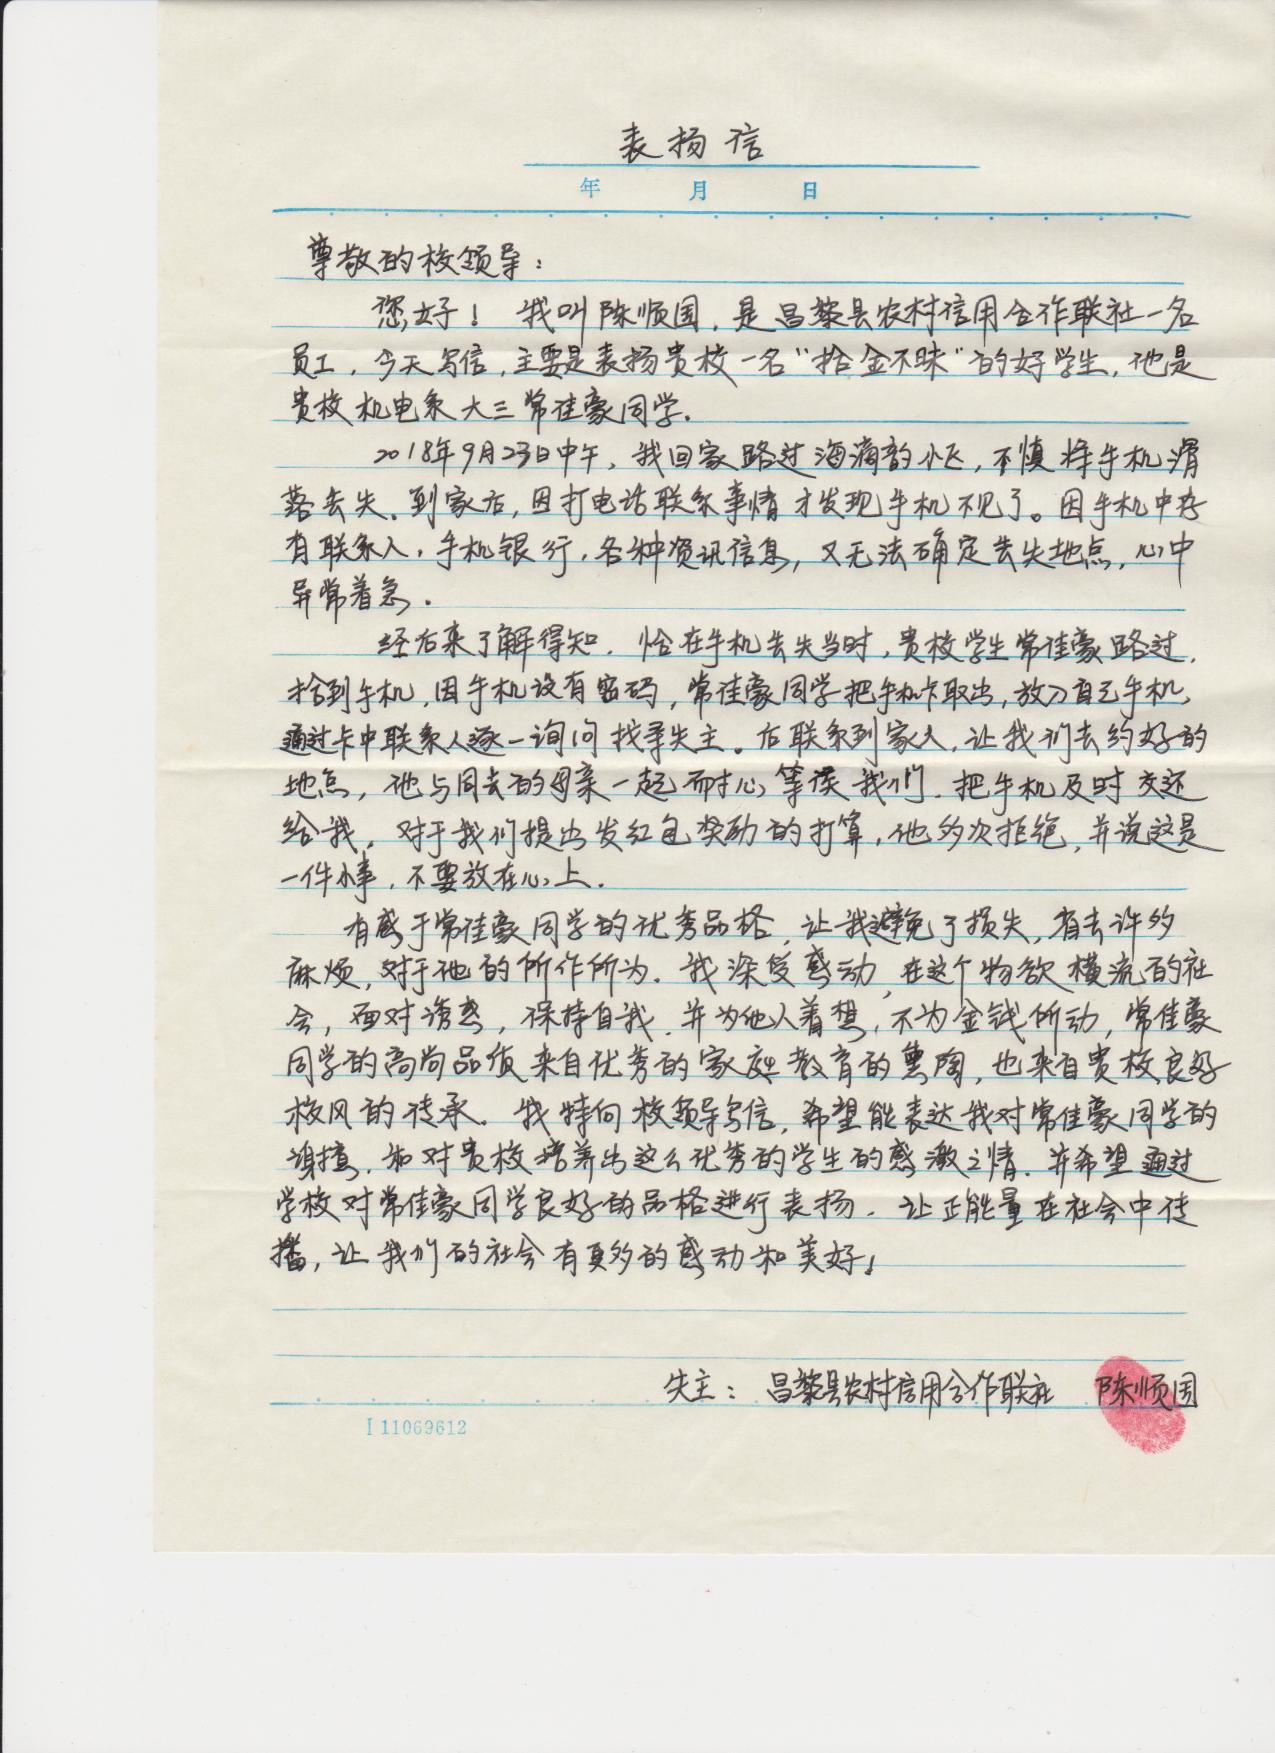 表扬信
年 月 日
尊敬的校领导：
您好！我叫陈顺国，是昌黎县农村信用合作联社一名
员工，今天写信，主要是表扬贵校一名“拾金不昧”的好学生，他是
贵校机电系大三常佳豪同学。
2018年9月23日中午，我回家路过海滴韵小区，不慎将手机滑
落丢失。到家后，因打电话联系事情才发现手机不见了。因手机中存
有联系人，手机银行，各种资讯信息，又无法确定丢失地点，心中
异常着急。
经后来了解得知，恰在手机丢失当时，贵校学生常佳豪路过，
拾到手机，因手机没有密码，常佳豪同学把手机卡取出，放入自己手机，
通过卡中联系人逐一询问找寻失主。后联系到家人，让我们去约好的
地点，他与同去的母亲一起耐心等候我们，把手机及时交还
给我，对于我们提出发红包奖励的打算，他多次拒绝，并说这是
一件小事，不要放在心上。
有感于常佳豪同学的优秀品格，让我避免了损失，省去许多
麻烦，对于他的所作所为，我深受感动，在这个物欲横流的社
会，面对诱惑，保持自我，并为他人着想，不为金钱所动，常佳豪
同学的高尚品质来自优秀的家庭教育的熏陶，也来自贵校良好
校风的传承。我特向校领导写信，希望能表达我对常佳豪同学的
谢意，和对贵校培养出这么优秀的学生的感激之情，并希望通过
学校对常佳豪同学良好的品格进行表扬，让正能量在社会中传
播，让我们的社会有更多的感动和美好！
失主：昌黎县农村信用合作联社 陈顺国
I 11069612